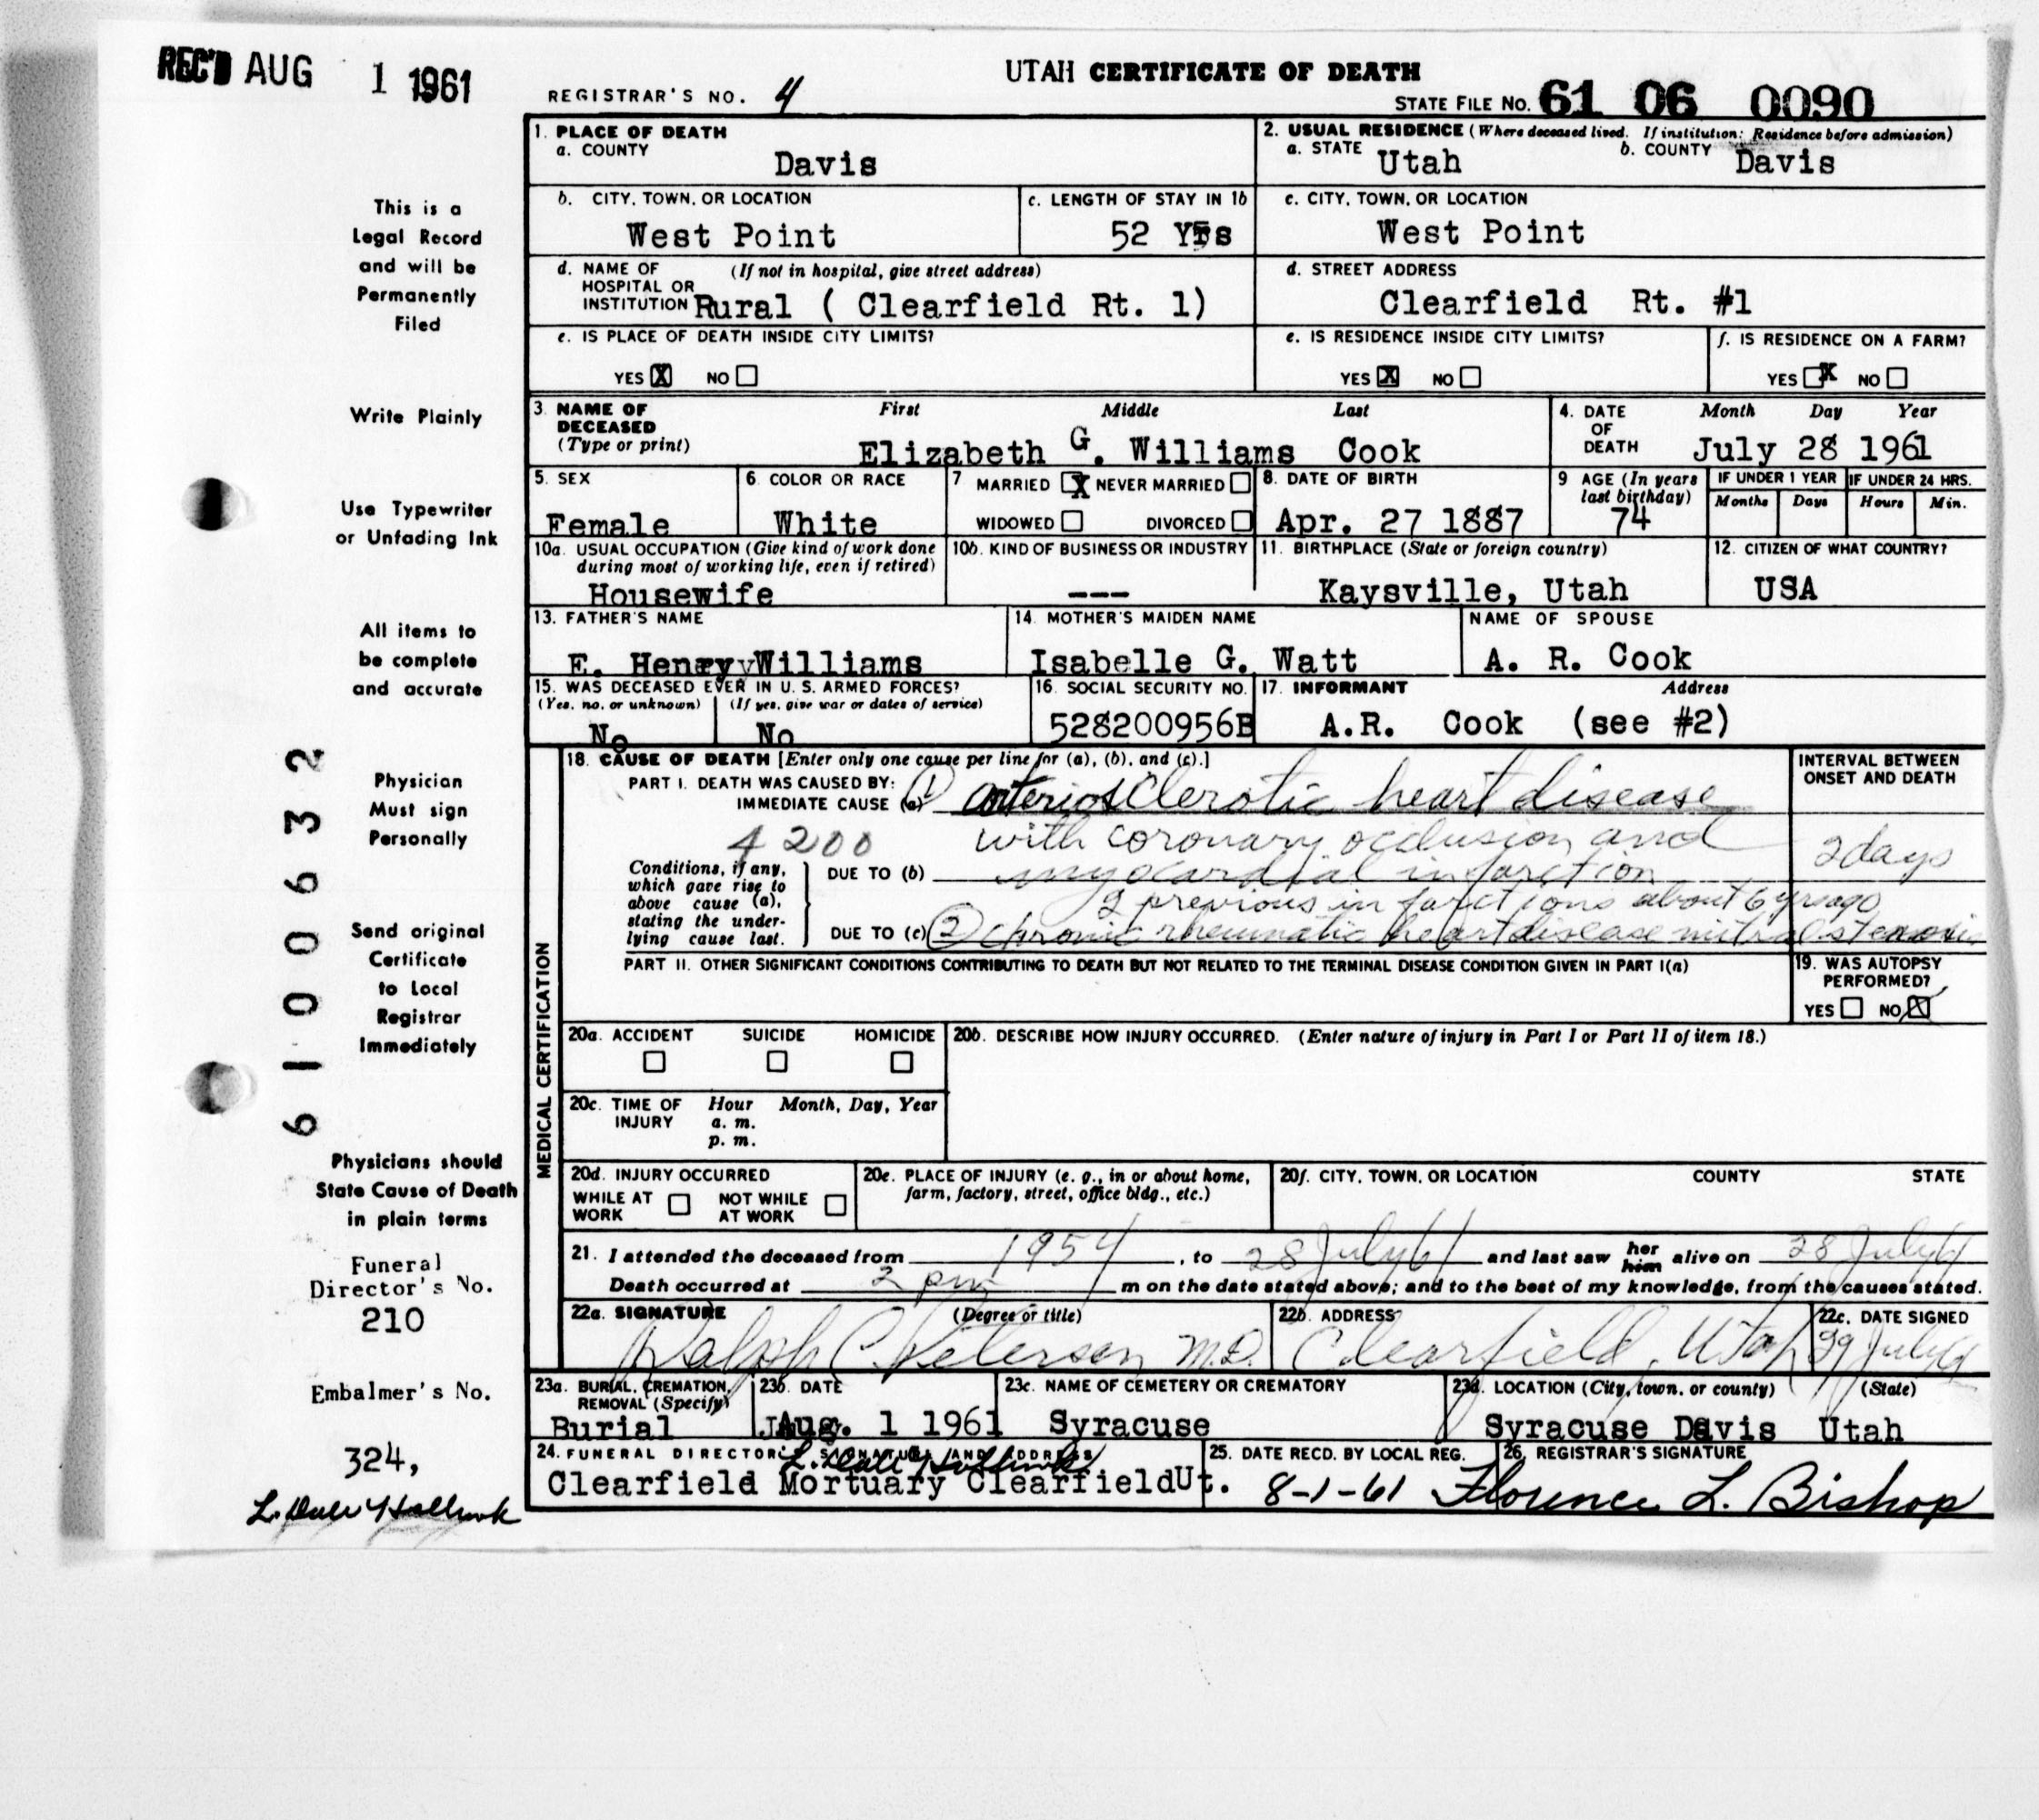 REC'D AUG 1 1961
UTAH CERTIFICATE OF DEATH
REGISTRAR'S NO. 4
STATE FILE NO. 61 06 0090
1. PLACE OF DEATH
a. COUNTY
Davis
2. USUAL RESIDENCE (Where deceased lived. If institution: Residence before admission)
a. STATE Utah b. COUNTY Davis
b. CITY, TOWN, OR LOCATION
West Point
c. LENGTH OF STAY IN 1b
52 Yrs
c. CITY, TOWN, OR LOCATION
West Point
d. NAME OF (If not in hospital, give street address)
HOSPITAL OR
INSTITUTION Rural ( Clearfield Rt. 1)
d. STREET ADDRESS
Clearfield Rt. #1
e. IS PLACE OF DEATH INSIDE CITY LIMITS?
YES X NO
e. IS RESIDENCE INSIDE CITY LIMITS?
YES X NO
f. IS RESIDENCE ON A FARM?
YES X NO
3. NAME OF DECEASED (Type or print)
First Middle Last
Elizabeth G. Williams Cook
4. DATE OF DEATH
Month Day Year
July 28 1961
5. SEX
Female
6. COLOR OR RACE
White
7 MARRIED X NEVER MARRIED
WIDOWED DIVORCED
8. DATE OF BIRTH
Apr. 27 1887
9 AGE (In years last birthday)
74
IF UNDER 1 YEAR
Months Days
IF UNDER 24 HRS.
Hours Min.
10a. USUAL OCCUPATION (Give kind of work done
during most of working life, even if retired)
Housewife
10b. KIND OF BUSINESS OR INDUSTRY
---
11. BIRTHPLACE (State or foreign country)
Kaysville, Utah
12. CITIZEN OF WHAT COUNTRY?
USA
13. FATHER'S NAME
E. Henry Williams
14. MOTHER'S MAIDEN NAME
Isabelle G. Watt
NAME OF SPOUSE
A. R. Cook
15. WAS DECEASED EVER IN U. S. ARMED FORCES?
(Yes, no, or unknown) (If yes, give war or dates of service)
No No
16. SOCIAL SECURITY NO.
528200956B
17. INFORMANT Address
A.R. Cook (see #2)
18. CAUSE OF DEATH [Enter only one cause per line for (a), (b), and (c).]
PART I. DEATH WAS CAUSED BY:
IMMEDIATE CAUSE (a) (1) arteriosclerotic heart disease
4200 with coronary occlusion and
Conditions, if any,
which gave rise to
above cause (a),
stating the under-
lying cause last.
DUE TO (b) myocardial infarction
2 previous infarctions about 6 yrs ago
DUE TO (c) (2) chronic rheumatic heart disease mitral stenosis
INTERVAL BETWEEN
ONSET AND DEATH
2 days
PART II. OTHER SIGNIFICANT CONDITIONS CONTRIBUTING TO DEATH BUT NOT RELATED TO THE TERMINAL DISEASE CONDITION GIVEN IN PART I(a)
19. WAS AUTOPSY
PERFORMED?
YES NO X
MEDICAL CERTIFICATION
20a. ACCIDENT SUICIDE HOMICIDE
20b. DESCRIBE HOW INJURY OCCURRED. (Enter nature of injury in Part I or Part II of item 18.)
20c. TIME OF INJURY
Hour Month, Day, Year
a. m.
p. m.
20d. INJURY OCCURRED
WHILE AT WORK NOT WHILE AT WORK
20e. PLACE OF INJURY (e. g., in or about home,
farm, factory, street, office bldg., etc.)
20f. CITY, TOWN, OR LOCATION COUNTY STATE
21. I attended the deceased from 1954, to 28 July 61 and last saw her him alive on 28 July 61
Death occurred at 2 pm m on the date stated above; and to the best of my knowledge, from the causes stated.
22a. SIGNATURE (Degree or title)
Ralph C. Petersen M.D.
22b. ADDRESS
Clearfield, Utah
22c. DATE SIGNED
29 July 61
23a. BURIAL, CREMATION,
REMOVAL (Specify)
Burial
23b. DATE
Aug. 1 1961
23c. NAME OF CEMETERY OR CREMATORY
Syracuse
23d. LOCATION (City, town, or county) (State)
Syracuse Davis Utah
24. FUNERAL DIRECTOR'S SIGNATURE AND ADDRESS
Clearfield Mortuary Clearfield Ut.
25. DATE RECD. BY LOCAL REG.
8-1-61
26. REGISTRAR'S SIGNATURE
Florence L. Bishop
This is a
Legal Record
and will be
Permanently
Filed
Write Plainly
Use Typewriter
or Unfading Ink
All items to
be complete
and accurate
Physician
Must sign
Personally
Send original
Certificate
to Local
Registrar
Immediately
Physicians should
State Cause of Death
in plain terms
Funeral
Director's No.
210
Embalmer's No.
324,
L. Dale
6100632